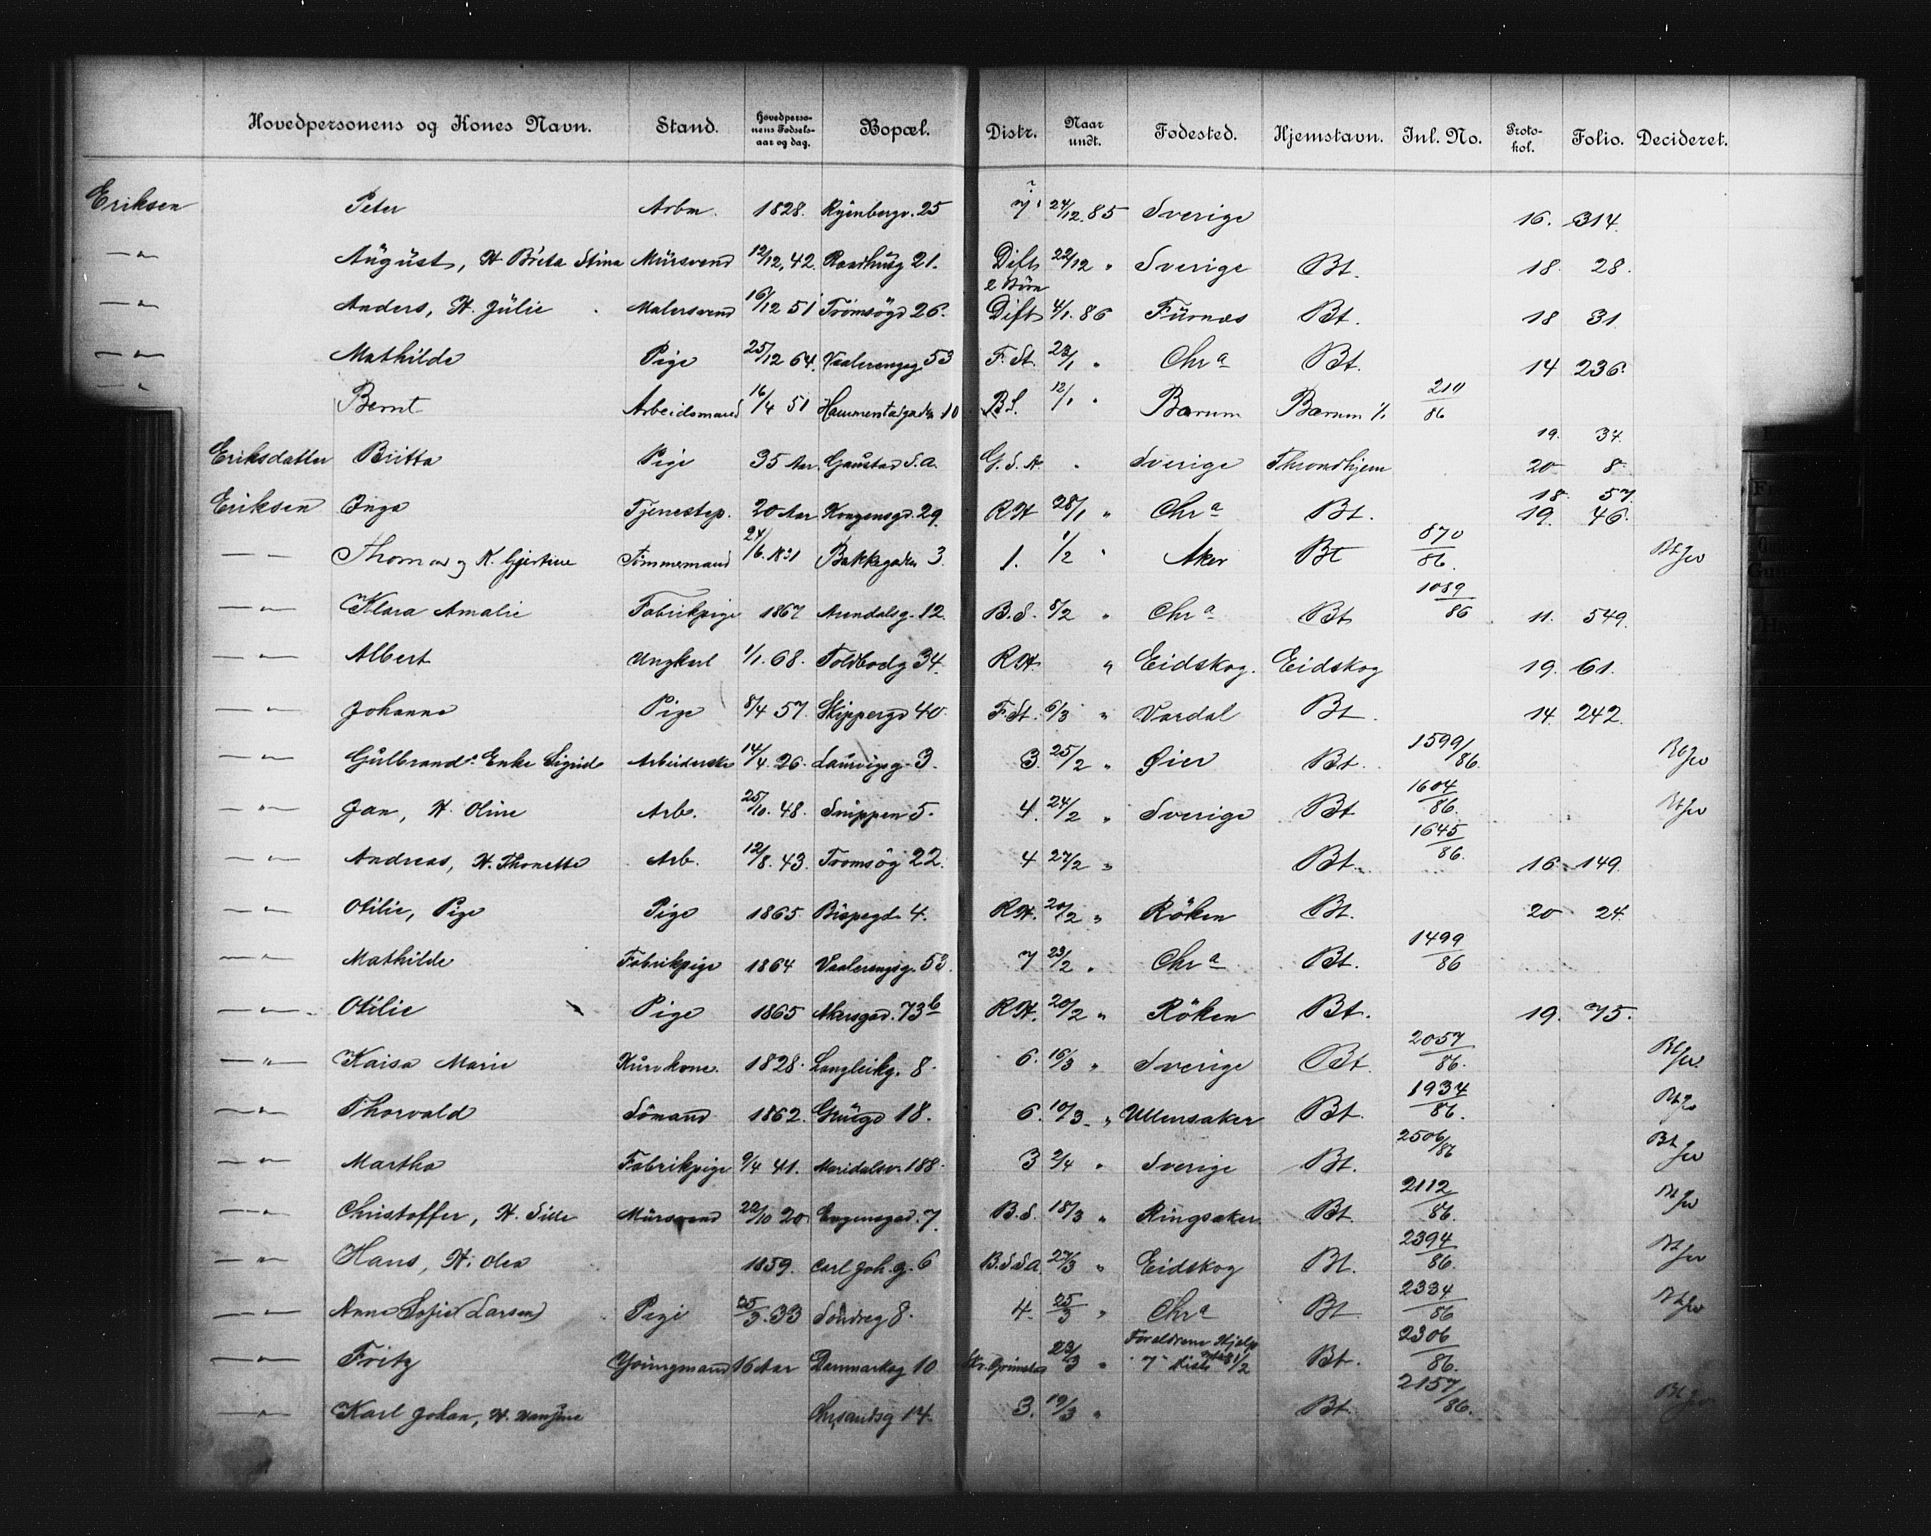 Hovedpersonens og Kones Navn. Stand. Hovedpersonens Fødselsaar og dag. Bopæl. Distr. Naar undt. Fødested. Hjemstavn. Inl. No. Protokol. Folio. Decideret.
Eriksen Peter Arbm. 1828. Ryenbergv. 25 7. 24/12. 85 Sverige 16. 314.
—"— August, H Brita Stina Mursvend 12/12. 42. Raadhusg 21. Dift 22/12 " Sverige Bt. 18. 28.
—"— Anders, H. Julie Malersvend 16/12 51 Tromsøgd 26. 2 Børn Dift 4/1. 86 Furnæs Bt. 18 31.
—"— Mathilde Pige 25/12 64. Vaalerengsg. 53 F. St. 22/1 " Chra Bt. 14 236.
—"— Bernt Arbeidsmand 16/4 51 Hammerstadgaden 10 B.S. 12/1 " Bærum Bærum 210/86
19. 34.
Eriksdatter Britta Pige 35 Aar. Gaustad S.A. G.S.A. " Sverige Throndhjem 20 8
Eriksen Inga Tjenestep. 20 Aar Kongensgd. 29. RH 28/1 " Chra Bt. 18. 57. 19. 46.
—"— Thomas og K. Gjertine Tømmermand 24/6. Bakkegaden 3. 1. 1/2 " Aker Bt 870/86.
—"— Klara Amalie Fabrikpige 1867 Arendalsg. 12. B.S. 8/2 " Chra Bt 1089/86 11. 549.
—"— Albert Ungkarl 1/1. 68. Toldbodg 34. RH. " Eidskog. Eidskog 19. 61.
—"— Johanne Pige 8/4 57. Skippergd 40. F.St. 6/3 " Vardal Bt. 14. 242.
—"— Gulbrands Enke Sigrid Arbeiderske 14/4. 26. Laurvigsg. 3. 3. 25/2 " Øier Bt. 1599/86.
—"— Jan, H. Oline Arb. 25/10. 48. Snippen 5. 4. 24/2 " Sverige Bt 1604/86.
—"— Andreas, H. Thonette Arb. 12/8. 43. Tromsøg 22. 4 27/2 " Bt. 1645/86. 16. 149.
—"— Otilie, Pige Pige 1865 Bispegd. 4. RH. 20/2 " Røken Bt. 20 24.
—"— Mathilde Fabrikpige 1864 Vaalerengsg. 53. 7 23/2 " Chra Bt. 1499/86
—"— Otilie Pige 1865 Akersgad. 73b RH. 20/2 " Røken Bt. 19. 75.
—"— Kaisa Marie Kurvkone. 1828. Langleikg. 8. 6. 16/3 " Sverige Bt. 2057/86.
—"— Thorvald Sømand 1862. 18. 6. 10/3. " Ullensaker Bt. 1934/86.
—"— Martha Fabrikpige 9/4 41. Maridalsv. 188. 3 2/4 " Sverige Bt. 2506/86
—"— Christoffer, H. Sille Mursvend 22/10 20 Engensgad. 7. B.S. 18/3 " Ringsaker Bt. 2112/86.
—"— Hans, H. Olea 1859. Carl Joh. g. 6 B.S.S.A. 27/3 " Eidskog Bt. 2394/86.
—"— Anne Sofie (Larsen) Pige 25/3. 33 Søndreg 8. 4. 25/3 " Chra Bt. 2334/86
—"— Fritz Youngmand 16 Aar Danmarksg 10 23/3 " Forældrene Hjelp 7 Dist. Bt. 2306/86.
—"— Karl Johan, H. Chrsandsg 14. 3. 19/3 " Bt. 2157/86.